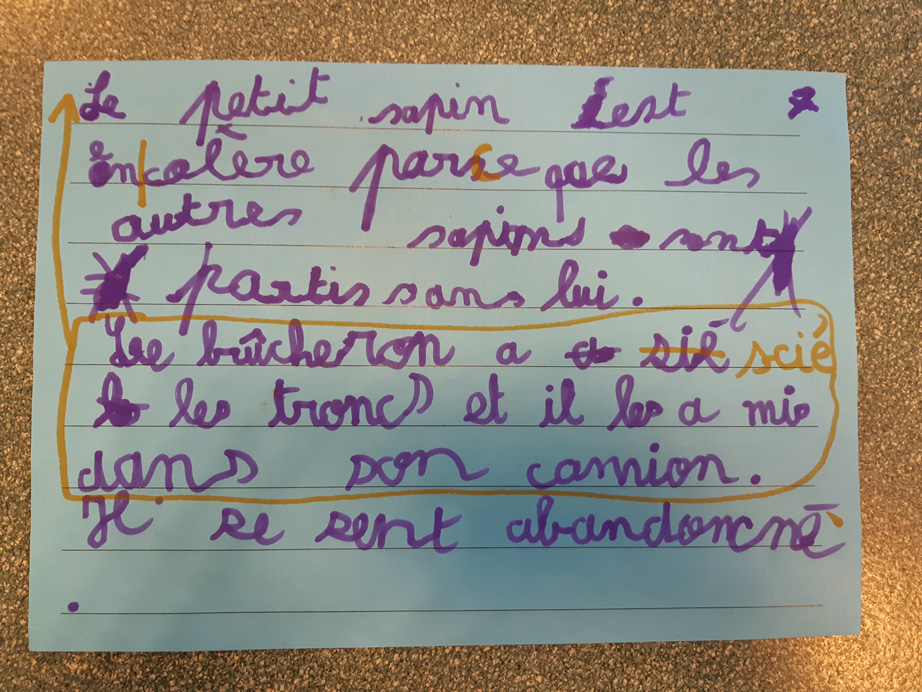 Le petit sapin est
en colère parce que les
autres sapins sont
partis sans lui.
Le bûcheron a sié scié
les troncs et il les a mis
dans son camion.
Il se sent abandonné
.